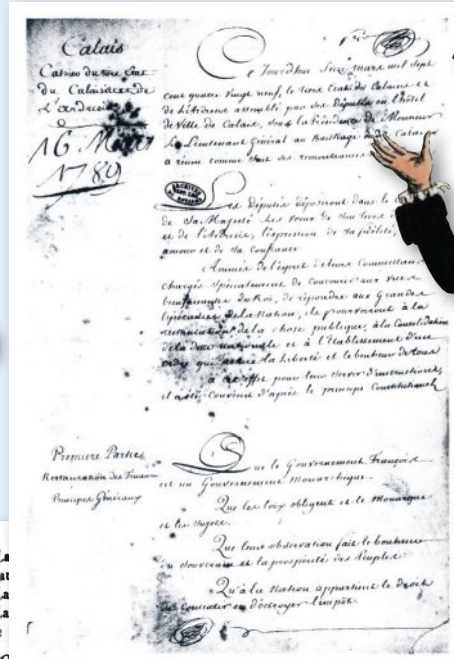 Calais
Cahier du tiers Etat
du Calaisis et de
L'ardresis
16 Mars
1789
Ce Jourd'hui Seize mars mil Sept
cent quatre Vingt neuf, le tiers Etat du Calaisis et
de L'Ardresis assemblé par ses Députés en l'hôtel
de Ville de Calais, sous la Présidence de Monsieur
Le Lieutenant Général au Bailliage de Calais
a réuni comme Suit ses remontrances
Les Députés déposeront dans le
de Sa Majesté Les vœux de Son tiers
et de l'Ardresis, l'expression de sa fidélité
amour et de sa Confiance
Animés de l'esprit de leurs Commettans
chargés Spécialement de Concourir aux vues
bienfaisantes du Roi, de répondre aux Grandes
Espérances de la Nation, ils pourvoiront à la
restauration de la chose publique, à la Consolidation
de la dette nationale et à l'établissement d'un
ordre qui assure la Liberté et le bonheur de tous
à cet effet pour leur Servir d'instructions,
il a été Convenu d'après le principe Constitutionel
Premiere Partie
Restauration des Finances
Principes Généraux
Que le Gouvernement François
est un Gouvernement Monarchique.
Que les loix obligent et le Monarque
et les Sujets.
Que leur observation fait le bonheur
du Souverain et la prospérité des Peuples.
Qu'à la Nation appartient le Droit
de Consentir ou d'octroyer l'impôt.